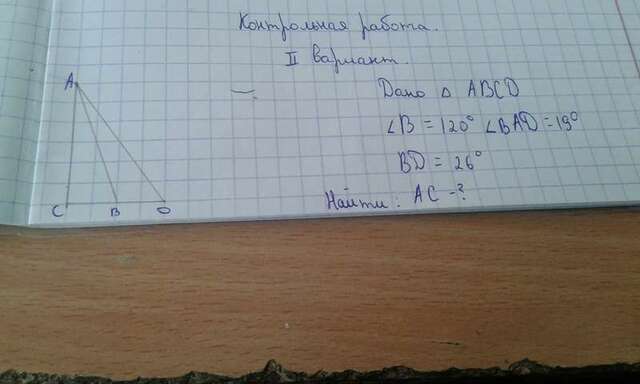 Контрольная работа.
II вариант.
Дано △ ABCD
∠B = 120° ∠BAD = 19°
BD = 26°
Найти: AC - ?
A
C B D